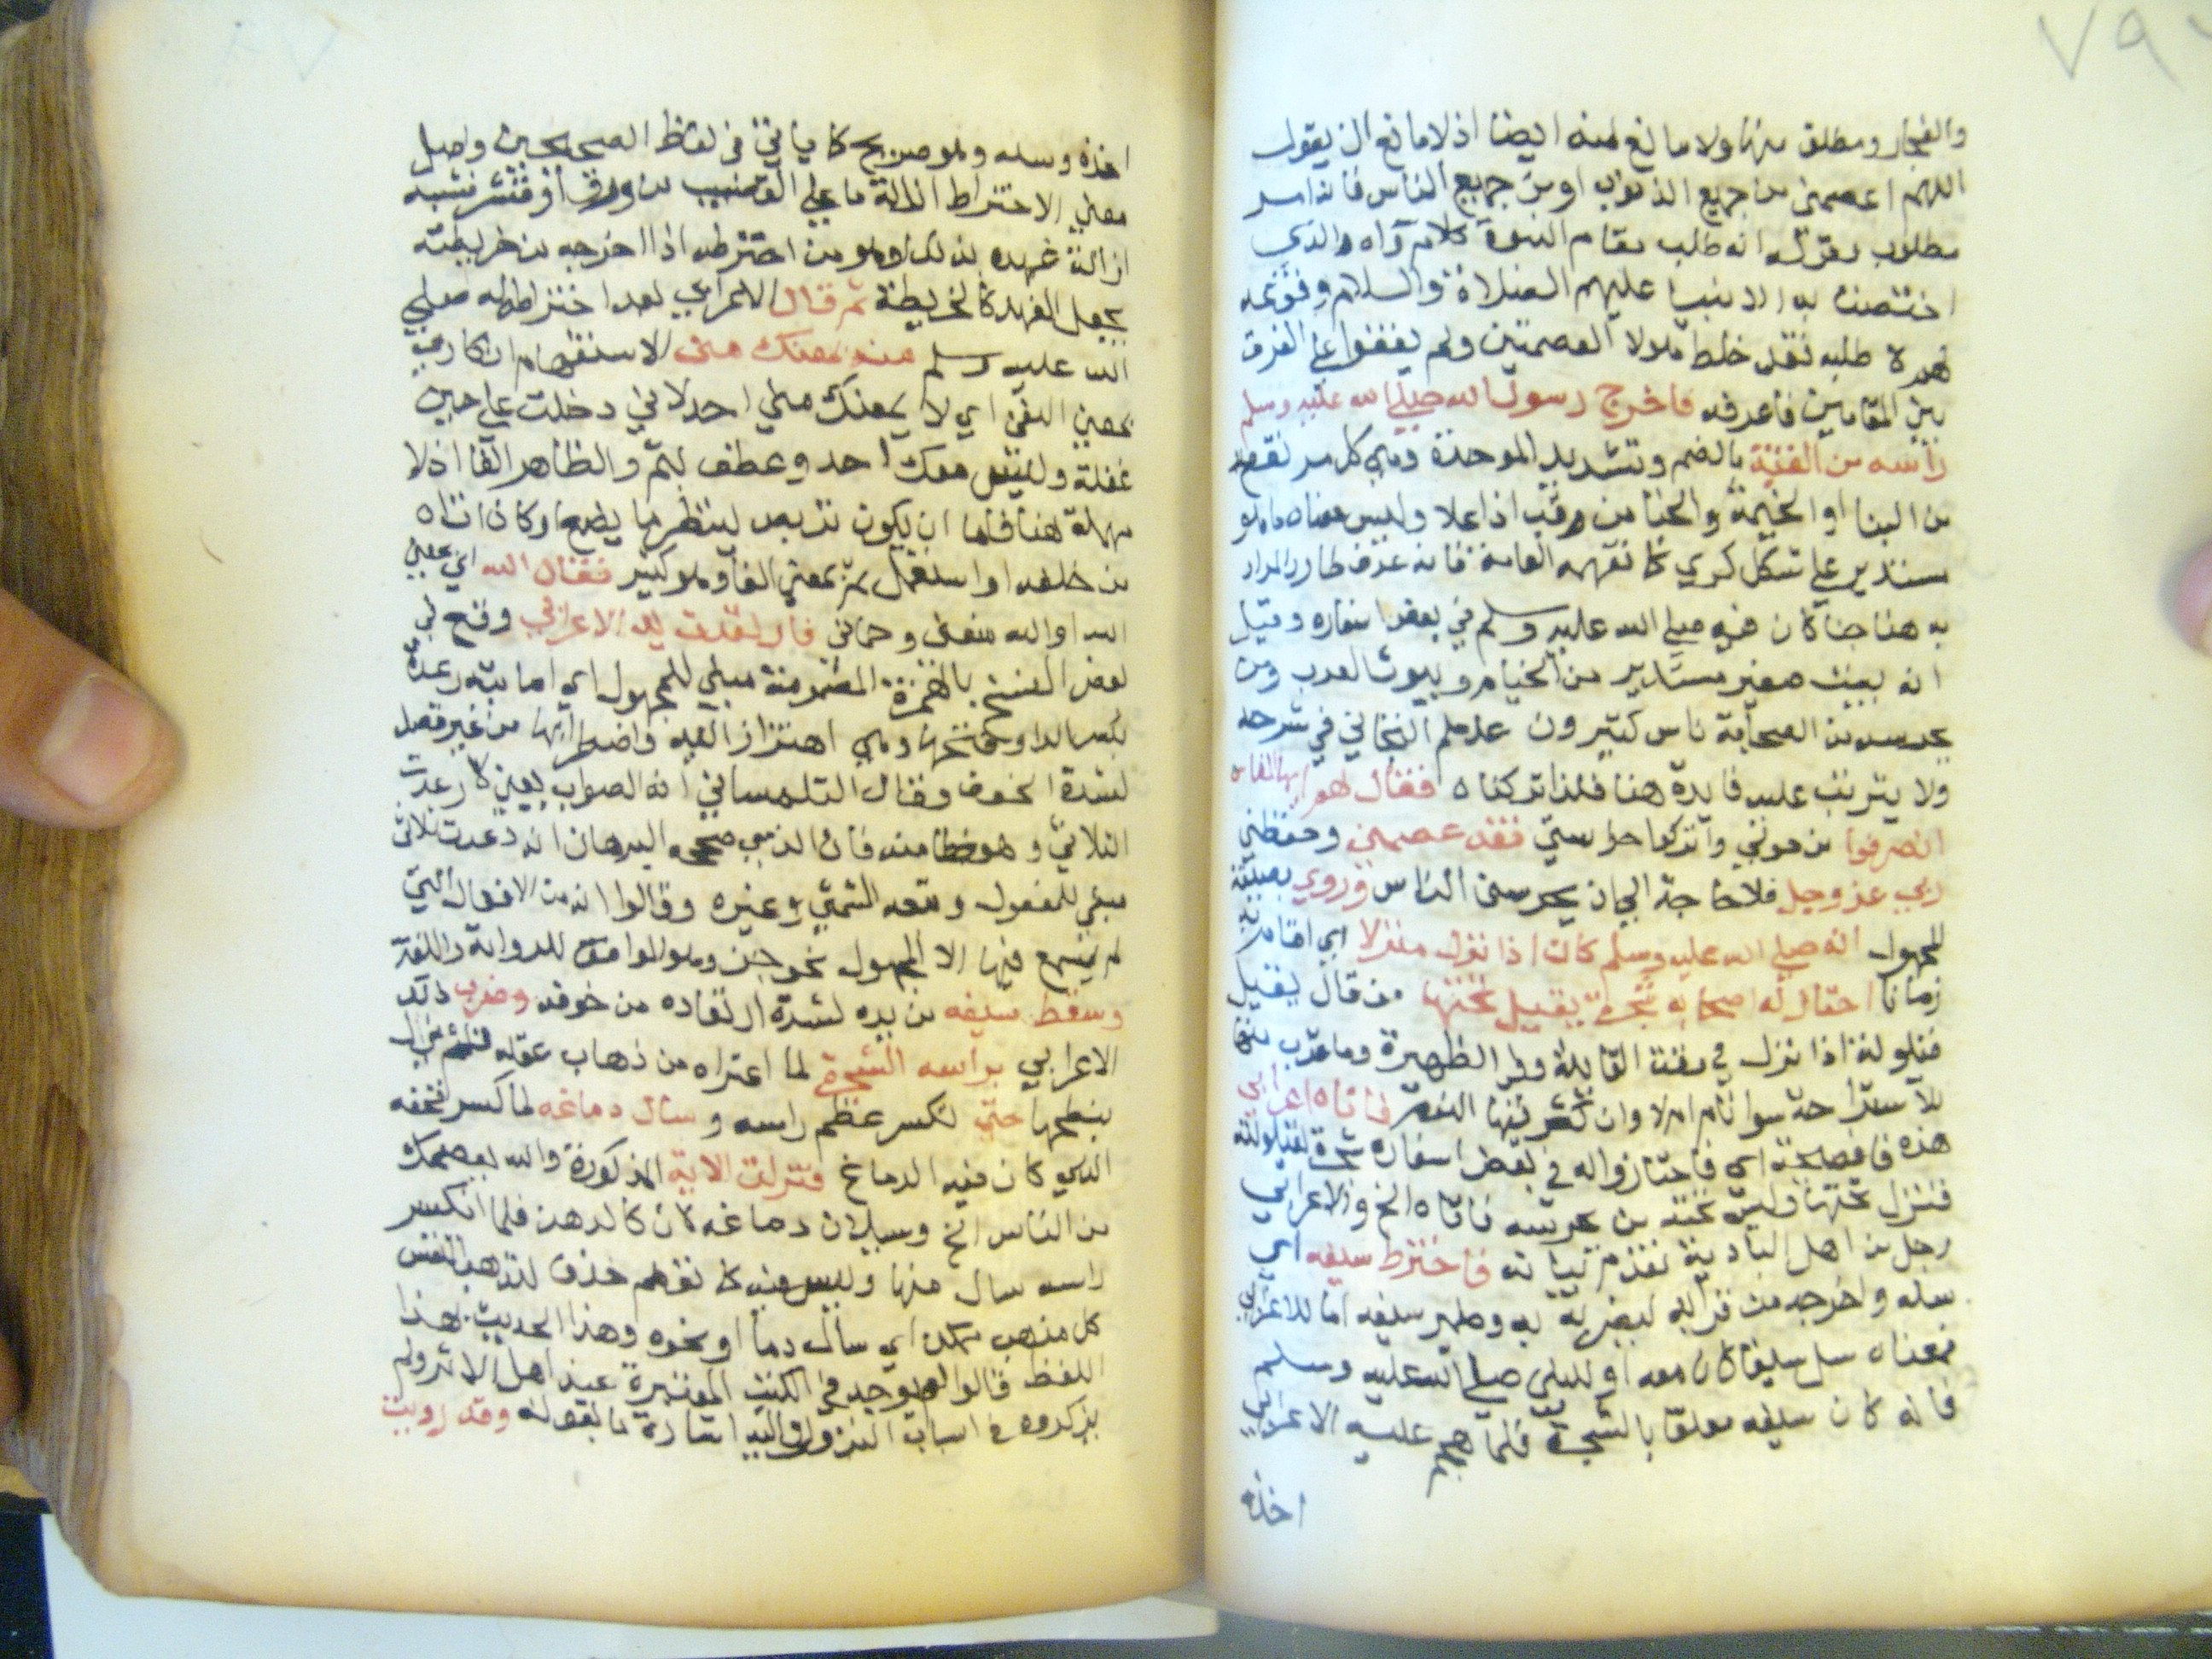 ٧٩
والفجار ومطلق منها ولا مانع منه ايضا اذ لا مانع ان يقول
اللهم اعصمني من جميع الذنوب او من جميع الناس فانه امر
مطلوب بقوله انه طلب مقام النبوة كلام واه والذي
اختصت به الانبيا عليهم الصلاة والسلام وقوعه
طلبه فقد خلط هولا العصمتين ولم يقفوا على الفرق
بين المقامين فاعرفه فاخرج رسول الله صلى الله عليه وسلم
رأسه من القبة بالضم وتشديد الموحدة وهي كل مرتفع
من البنا او الخيمة والخبا من قب اذا علا وليس معناه ما هو
مستدير على شكل كري كما تفهمه العامة فانه عرف طار والمراد
به هنا خبا كان فيه صلى الله عليه وسلم في بعض اسفاره وقيل
انه بيت صغير مستدير من الخيام وبيوت العرب ومن
يحرسه من الصحابة ناس كثيرون عدهم التجاني في شرحه
ولا يترتب عليه فايدة هنا فلذا تركناه فقال لهم ايها الناس
انصرفوا من صوني واتركوا حراستي فقد عصمني وحفظني
ربي عز وجل فلا حاجة الى ان يحرسني الناس وروي بصيغة
المجهول انه صلى الله عليه وسلم كان اذا نزل منزلا اي اقام به
زمانا اختار له اصحابه شجرة يقيل تحتها من قال يقيل
قيلولة اذا نزل في وقت القايلة وهي الظهيرة وما قرب منها
للاستراحة سوا نام ام لا وان كثر فيها النوم فاتاه اعرابي
هذه فا فصيحة اي فاختاروا له في بعض اسفاره شجرة لقيلولته
فنزل تحتها وليس عنده من يحرسه فاتاه الخ والاعرابي
رجل من اهل البادية تقدم بيانه فاخترط سيفه اي
سله واخرجه من قرابه ليضربه به وضمير سيفه اما للاعرابي
فمعناه سل سيفا كان معه او للنبي صلى الله عليه وسلم
فانه كان سيفه معلقا بالشجرة فلما هجم عليه الاعرابي
اخذه
اخذه وسله وهو صريح كما ياتي في لفظ الصحيحين واصل
معنى الاختراط ازالة ما على القضيب من ورق او قشر فشبه
ازالة غمده بذلك او هو من اخترطه اذا اخرجه من خريطته
بجعل الغمد كالخريطة ثم قال الاعرابي بعد اختراطه صلى
الله عليه وسلم من يمنعك مني الاستفهام انكاري
بمعنى النفي اي لا يمنعك مني احد لاني دخلت على حين
غفلة وليس معك احد وعطف بثم والظاهر الفا اذ لا
مهلة هنا فاما ان يكون تربص لينظر ما يصنع او كان اتاه
من خلفه او استعمل ثم بمعنى الفا وهو كثير فقال الله اي يمنعني
الله او الله منعني وحماني قال فارعدت يد الاعرابي وقع في
بعض النسخ بالهمزة المضمومة مبني للمجهول اي اصابته رعدة
بكسر الرا وفتحها وهي اهتزاز اليد واضطرابها من غير قصد
لشدة الخوف وقال التلمساني انه الصواب يعني كا رعدت
الثلاثي وهو خطا منه فان الذي صححه البرهان انه رعدت ثلاثي
مبني للمفعول وتبعه الشمني وغيره وقالوا انه من الافعال التي
لم يسمع فيها الا المجهول نحو جن وهو الموافق للرواية واللغة
وسقط سيفه من يده لشدة ارتعاده من خوفه وضرب ذلك
الاعرابي براسه الشجرة لما اعتراه من ذهاب عقله
ينطحها حتى انكسر عظم راسه وسال دماغه لما كسر قحفه
الذي كان فيه الدماغ فنزلت الاية المذكورة والله يعصمك
من الناس الخ وسيلان دماغه لان كالدهن فلما انكسر
راسه سال منها وليس فيه كما توهم حذف لتذهب النفس
كل مذهب ممكن اي سال دما او نحوه وهذا الحديث بهذا
اللفظ قالوا لم يوجد في الكتب المعتبرة عند اهل الاثر ولم
يذكروه في اسباب النزول واليه اشارة ما بقوله وقد رويت